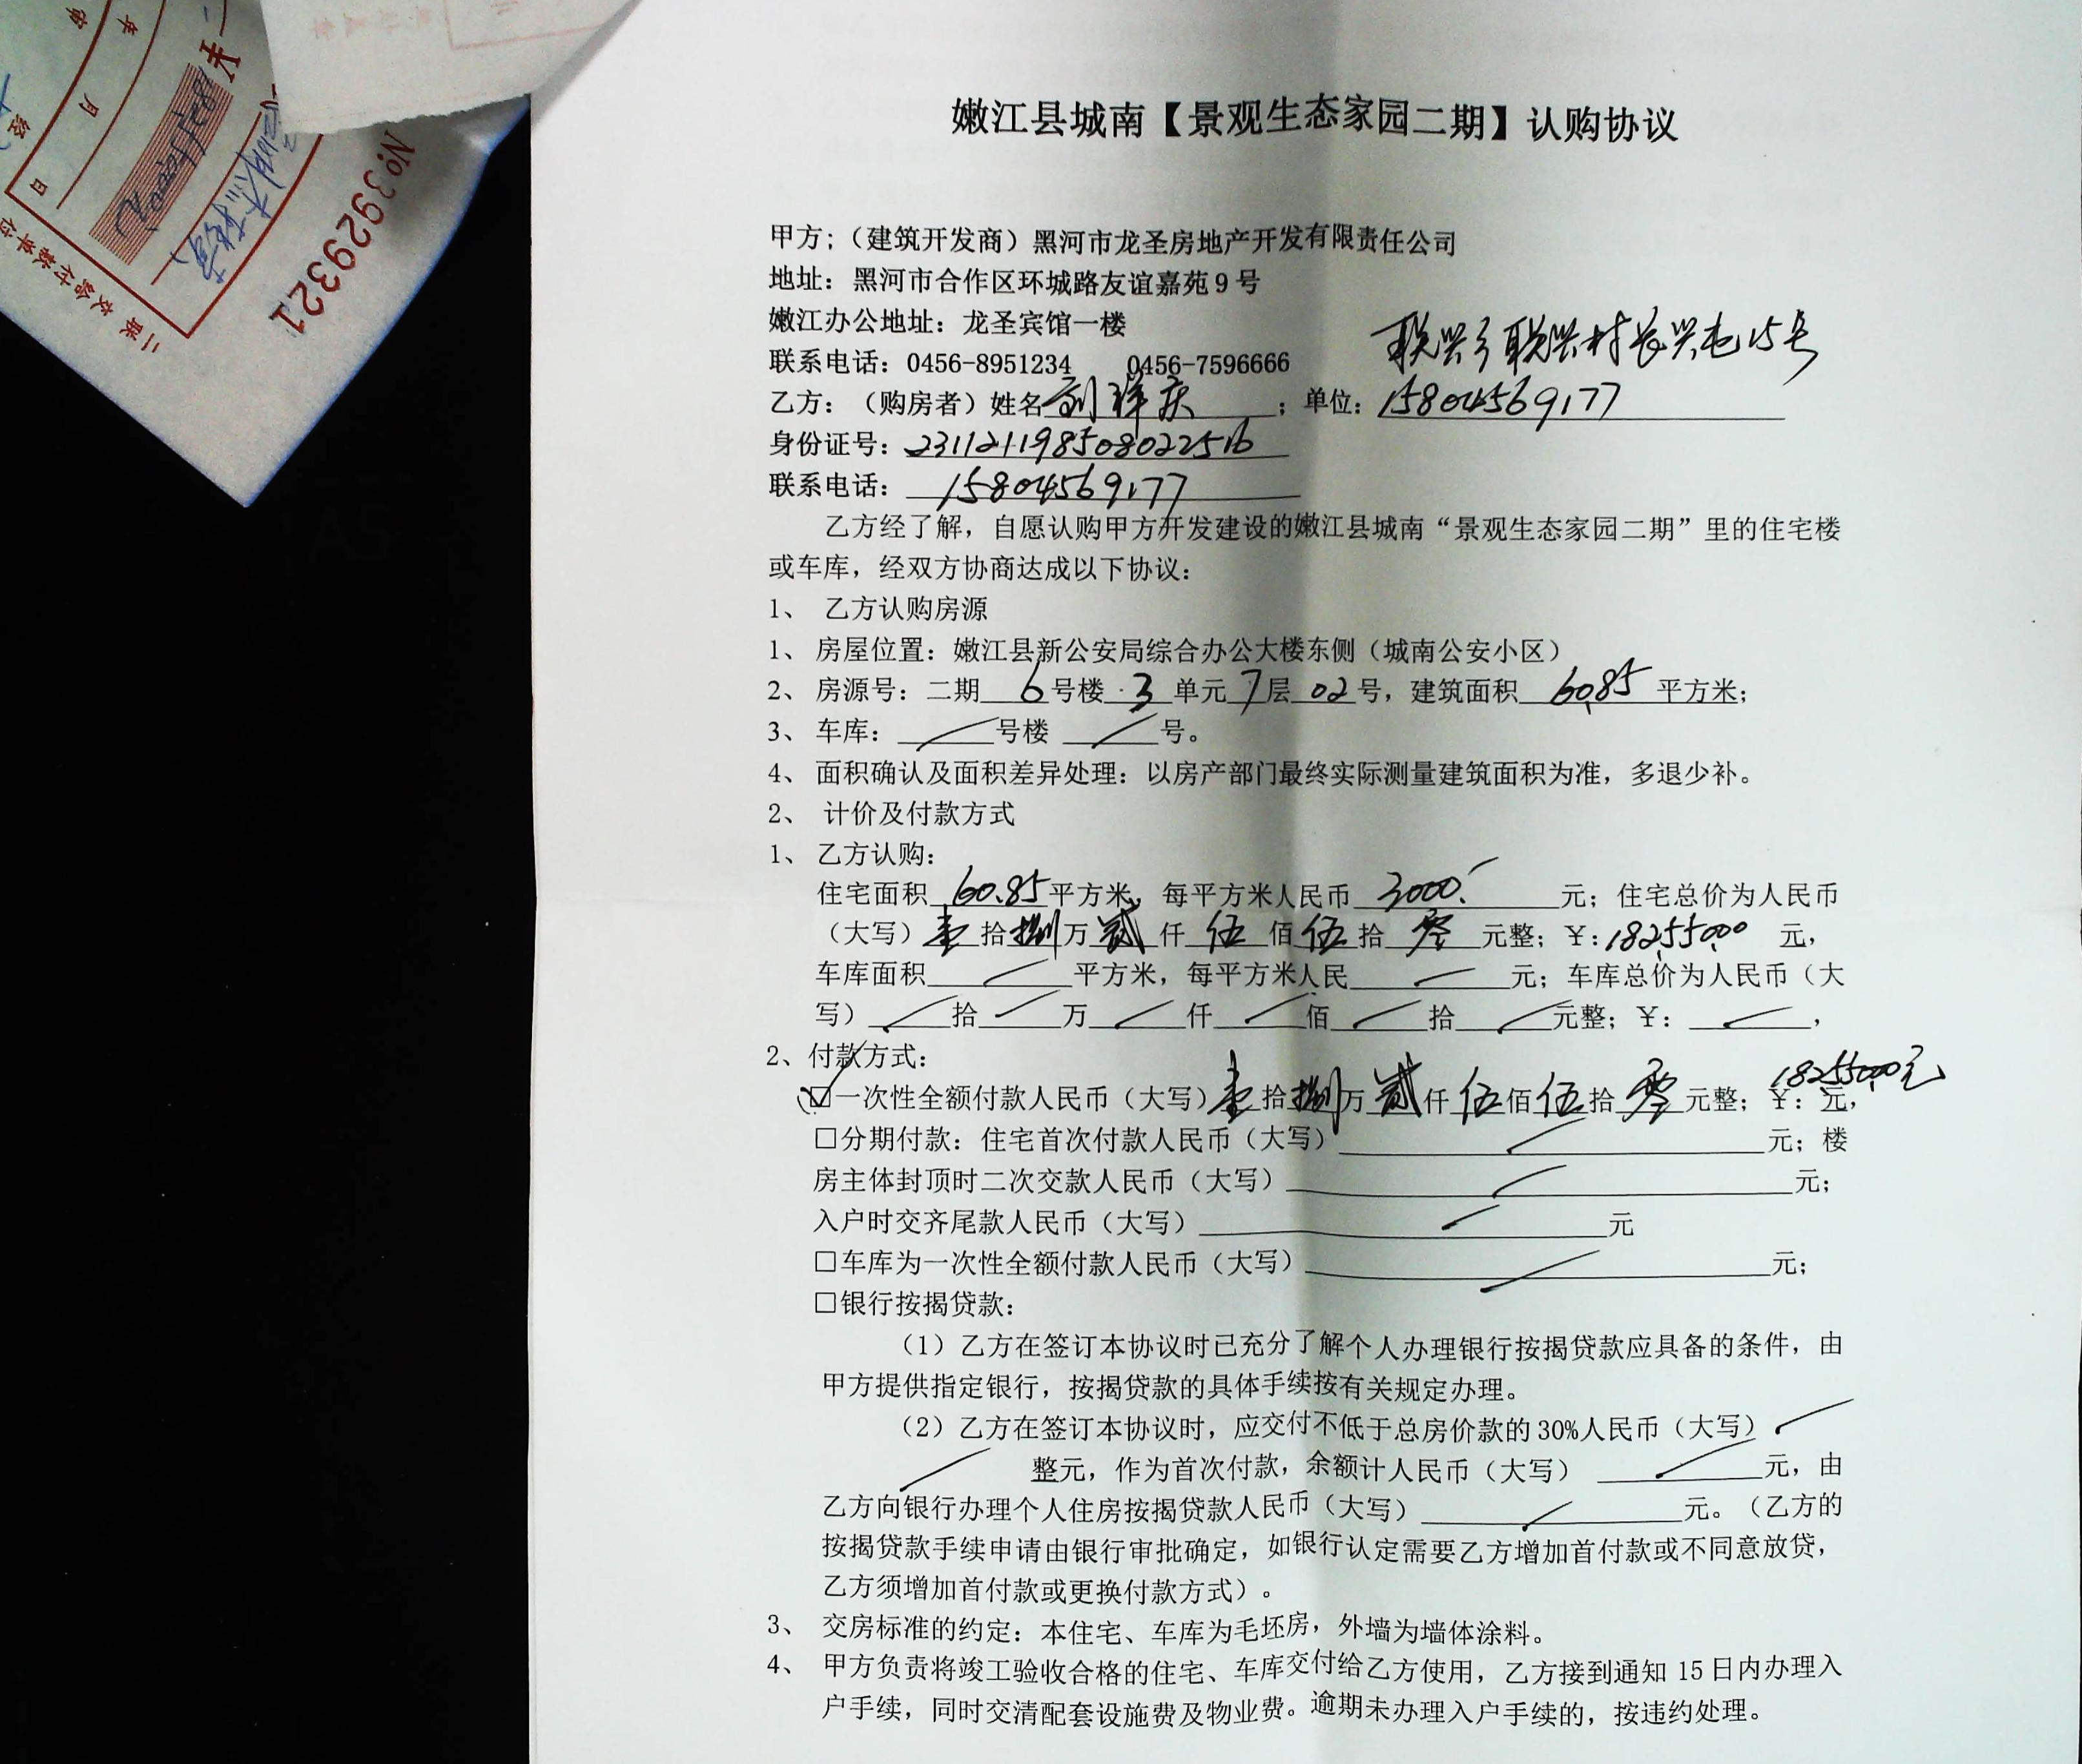 No 3929321
二联交给付款单位
年
月
日
嫩江县城南【景观生态家园二期】认购协议
甲方;（建筑开发商）黑河市龙圣房地产开发有限责任公司
地址：黑河市合作区环城路友谊嘉苑9号
嫩江办公地址：龙圣宾馆一楼
联兴乡联兴村长兴屯15号
联系电话：0456-8951234 0456-7596666
乙方：（购房者）姓名刘祥庆；单位：15804569177
身份证号：231121198508022516
联系电话：15804569177
乙方经了解，自愿认购甲方开发建设的嫩江县城南“景观生态家园二期”里的住宅楼
或车库，经双方协商达成以下协议：
1、 乙方认购房源
1、房屋位置：嫩江县新公安局综合办公大楼东侧（城南公安小区）
2、房源号：二期 6 号楼 3 单元 7 层 02 号，建筑面积 60.85 平方米；
3、车库： 号楼 号。
4、面积确认及面积差异处理：以房产部门最终实际测量建筑面积为准，多退少补。
2、 计价及付款方式
1、乙方认购：
住宅面积 60.85 平方米，每平方米人民币 3000. 元；住宅总价为人民币
（大写）壹拾捌万贰仟伍佰伍拾零元整；￥：182550.00 元，
车库面积 平方米，每平方米人民 元；车库总价为人民币（大
写） 拾 万 仟 佰 拾 元整；￥： ，
2、付款方式：
☑一次性全额付款人民币（大写）壹拾捌万贰仟伍佰伍拾零元整；￥：元，182550.00元
□分期付款：住宅首次付款人民币（大写） 元；楼
房主体封顶时二次交款人民币（大写） 元；
入户时交齐尾款人民币（大写） 元
□车库为一次性全额付款人民币（大写） 元；
□银行按揭贷款：
（1）乙方在签订本协议时已充分了解个人办理银行按揭贷款应具备的条件，由
甲方提供指定银行，按揭贷款的具体手续按有关规定办理。
（2）乙方在签订本协议时，应交付不低于总房价款的30%人民币（大写）
整元，作为首次付款，余额计人民币（大写） 元，由
乙方向银行办理个人住房按揭贷款人民币（大写） 元。（乙方的
按揭贷款手续申请由银行审批确定，如银行认定需要乙方增加首付款或不同意放贷，
乙方须增加首付款或更换付款方式）。
3、 交房标准的约定：本住宅、车库为毛坯房，外墙为墙体涂料。
4、 甲方负责将竣工验收合格的住宅、车库交付给乙方使用，乙方接到通知15日内办理入
户手续，同时交清配套设施费及物业费。逾期未办理入户手续的，按违约处理。